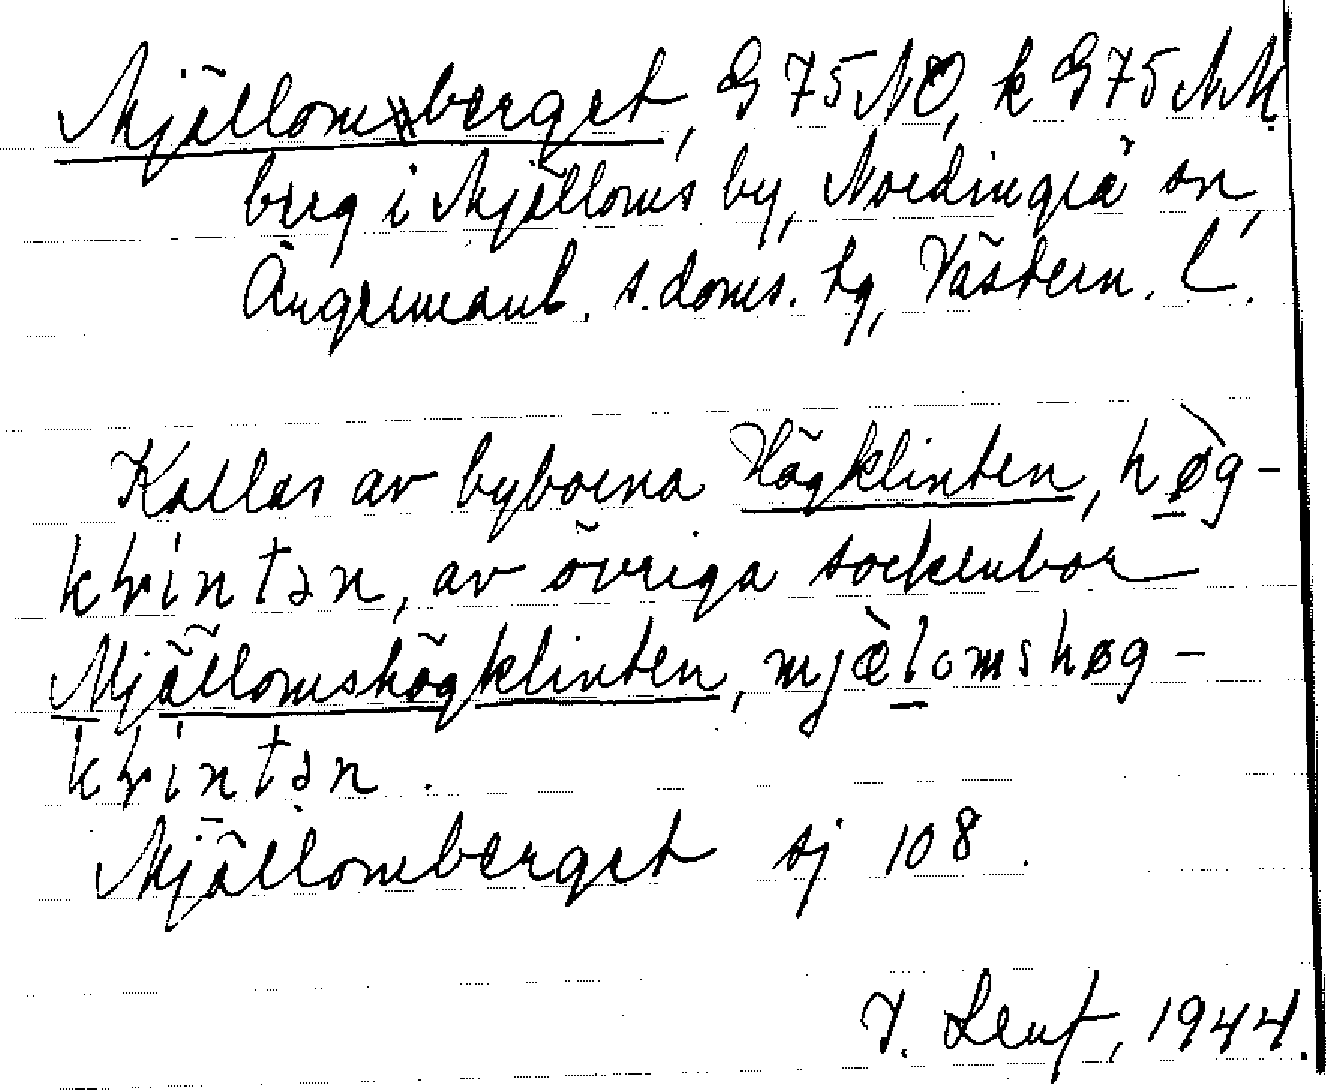 Mjällomberget, G 75 NO, k G 75 NM
berg i Mjälloms by, Nordingrå sn,
Ångermanl. s. doms. tg, Västern. L.
Kallas av byborna Högklinten, høg-
klintən, av övriga sockenbor
Mjällomshögklinten, mjælomshøg-
klintən.
Mjällomberget sj 108.
1944.